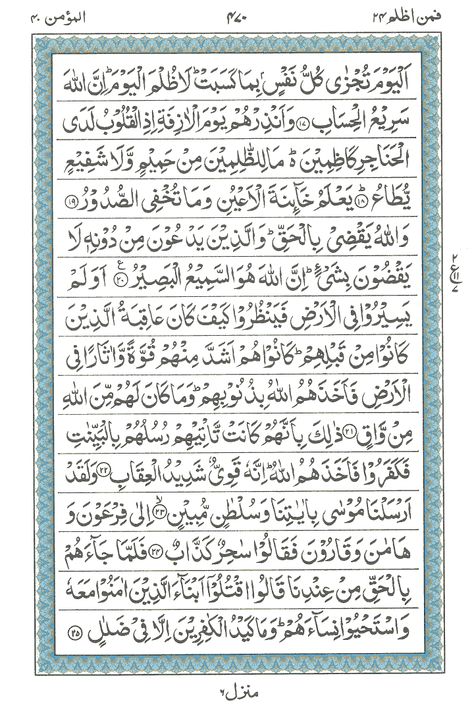 فمن اظلم ۲۴ ۴۷۰ المؤمن ۴۰
اَلْیَوْمَ تُجْزٰی کُلُّ نَفْسٍۭ بِمَا کَسَبَتْ ؕ لَا ظُلْمَ الْیَوْمَ ؕ اِنَّ اللّٰهَ
سَرِیْعُ الْحِسَابِ ﴿۱۷﴾ وَاَنْذِرْهُمْ یَوْمَ الْاٰزِفَةِ اِذِ الْقُلُوْبُ لَدَی
الْحَنَاجِرِ کٰظِمِیْنَ ؕ۬ مَا لِلظّٰلِمِیْنَ مِنْ حَمِیْمٍ وَّلَا شَفِیْعٍ
یُّطَاعُ ؕ ﴿۱۸﴾ یَعْلَمُ خَآئِنَةَ الْاَعْیُنِ وَمَا تُخْفِی الصُّدُوْرُ ﴿۱۹﴾
وَاللّٰهُ یَقْضِیْ بِالْحَقِّ ؕ وَالَّذِیْنَ یَدْعُوْنَ مِنْ دُوْنِهٖ لَا
یَقْضُوْنَ بِشَیْءٍ ؕ اِنَّ اللّٰهَ هُوَ السَّمِیْعُ الْبَصِیْرُ ﴿۲۰﴾ ع اَوَلَمْ
یَسِیْرُوْا فِی الْاَرْضِ فَیَنْظُرُوْا کَیْفَ کَانَ عَاقِبَةُ الَّذِیْنَ
کَانُوْا مِنْ قَبْلِهِمْ ؕ کَانُوْا هُمْ اَشَدَّ مِنْهُمْ قُوَّةً وَّاٰثَارًا فِی
الْاَرْضِ فَاَخَذَهُمُ اللّٰهُ بِذُنُوْبِهِمْ ؕ وَمَا کَانَ لَهُمْ مِّنَ اللّٰهِ
مِنْ وَّاقٍ ﴿۲۱﴾ ذٰلِکَ بِاَنَّهُمْ کَانَتْ تَّاْتِیْهِمْ رُسُلُهُمْ بِالْبَیِّنٰتِ
فَکَفَرُوْا فَاَخَذَهُمُ اللّٰهُ ؕ اِنَّهٗ قَوِیٌّ شَدِیْدُ الْعِقَابِ ﴿۲۲﴾ وَلَقَدْ
اَرْسَلْنَا مُوْسٰی بِاٰیٰتِنَا وَسُلْطٰنٍ مُّبِیْنٍ ۙ ﴿۲۳﴾ اِلٰی فِرْعَوْنَ وَ
هَامٰنَ وَقَارُوْنَ فَقَالُوْا سٰحِرٌ کَذَّابٌ ﴿۲۴﴾ فَلَمَّا جَآءَهُمْ
بِالْحَقِّ مِنْ عِنْدِنَا قَالُوا اقْتُلُوْۤا اَبْنَآءَ الَّذِیْنَ اٰمَنُوْا مَعَهٗ
وَاسْتَحْیُوْا نِسَآءَهُمْ ؕ وَمَا کَیْدُ الْکٰفِرِیْنَ اِلَّا فِیْ ضَلٰلٍ ﴿۲۵﴾
۲
ع ۱۱
۷
منزل ۶